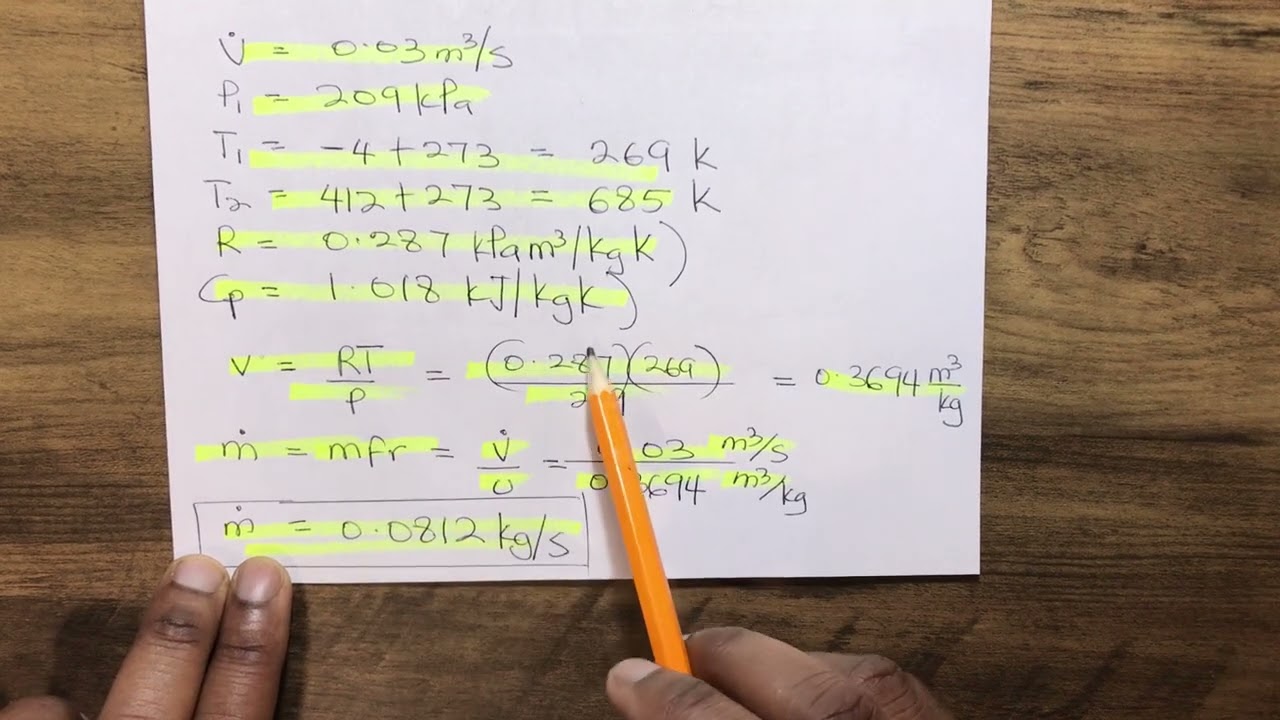 V̇ = 0.03 m³/s
P₁ = 209 kPa
T₁ = -4 + 273 = 269 K
T₂ = 412 + 273 = 685 K
R = 0.287 kPam³/kgK)
Cp = 1.018 kJ/kgK)
v = RT/P = (0.287)(269)/209 = 0.3694 m³/kg
ṁ = mfr = V̇/υ = 0.03 m³/s / 0.3694 m³/kg
ṁ = 0.0812 kg/s